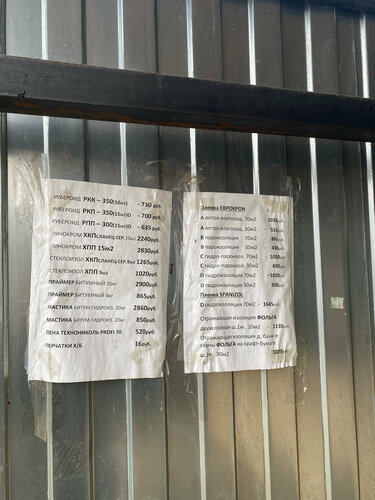 РУБЕРОИД РКК – 350(10м2) – 730 руб.
РУБЕРОИД РКП – 350(15м2)О – 700 руб.
РУБЕРОИД РПП – 300(15м2)О – 635 руб.
ЛИНОКРОМ ХКПСЛАНЕЦ СЕР.10м2 2240руб.
ЛИНОКРОМ ХПП 15м2 2830руб.
СТЕКЛОИЗОЛ ХКПСЛАНЕЦ СЕР.9м2 1265руб.
СТЕКЛОИЗОЛ ХПП 9м2 1020руб.
ПРАЙМЕР БИТУМНЫЙ 16кг 2900руб.
ПРАЙМЕР БИТУМНЫЙ 4кг 865руб.
МАСТИКА БИТУМ.ГИДРОИЗ. 20кг 2860руб.
МАСТИКА БИТУМ.ГИДРОИЗ. 20кг 850руб.
ПЕНА ТЕХНОНИКОЛЬ PROFI 70 520руб.
ПЕРЧАТКИ Х/Б 16руб.
Пленка ЕВРОКРОН
А ветро-влагозащ. 70м2 - 1030руб.
А ветро-влагозащ. 30м2 - 510руб.
В пароизоляция 70м2 845руб.
В пароизоляция 30м2 430руб.
С гидро-пароизол. 70м2 1050руб.
С гидро-пароизол. 30м2 430руб.
D гидроизоляция 70м2 -1620руб.
D гидроизоляция 30м2 900руб.
Пленка SPANIZOL
D гидроизоляция 70м2 – 1645руб.
Отражающая изоляция ФОЛЬГА
двухслойная ш.1м , 10м2 - 1135руб.
Отражающая изоляция д. бани и
сауны ФОЛЬГА на крафт-бумаге
ш.1м , 30м2 1025руб.